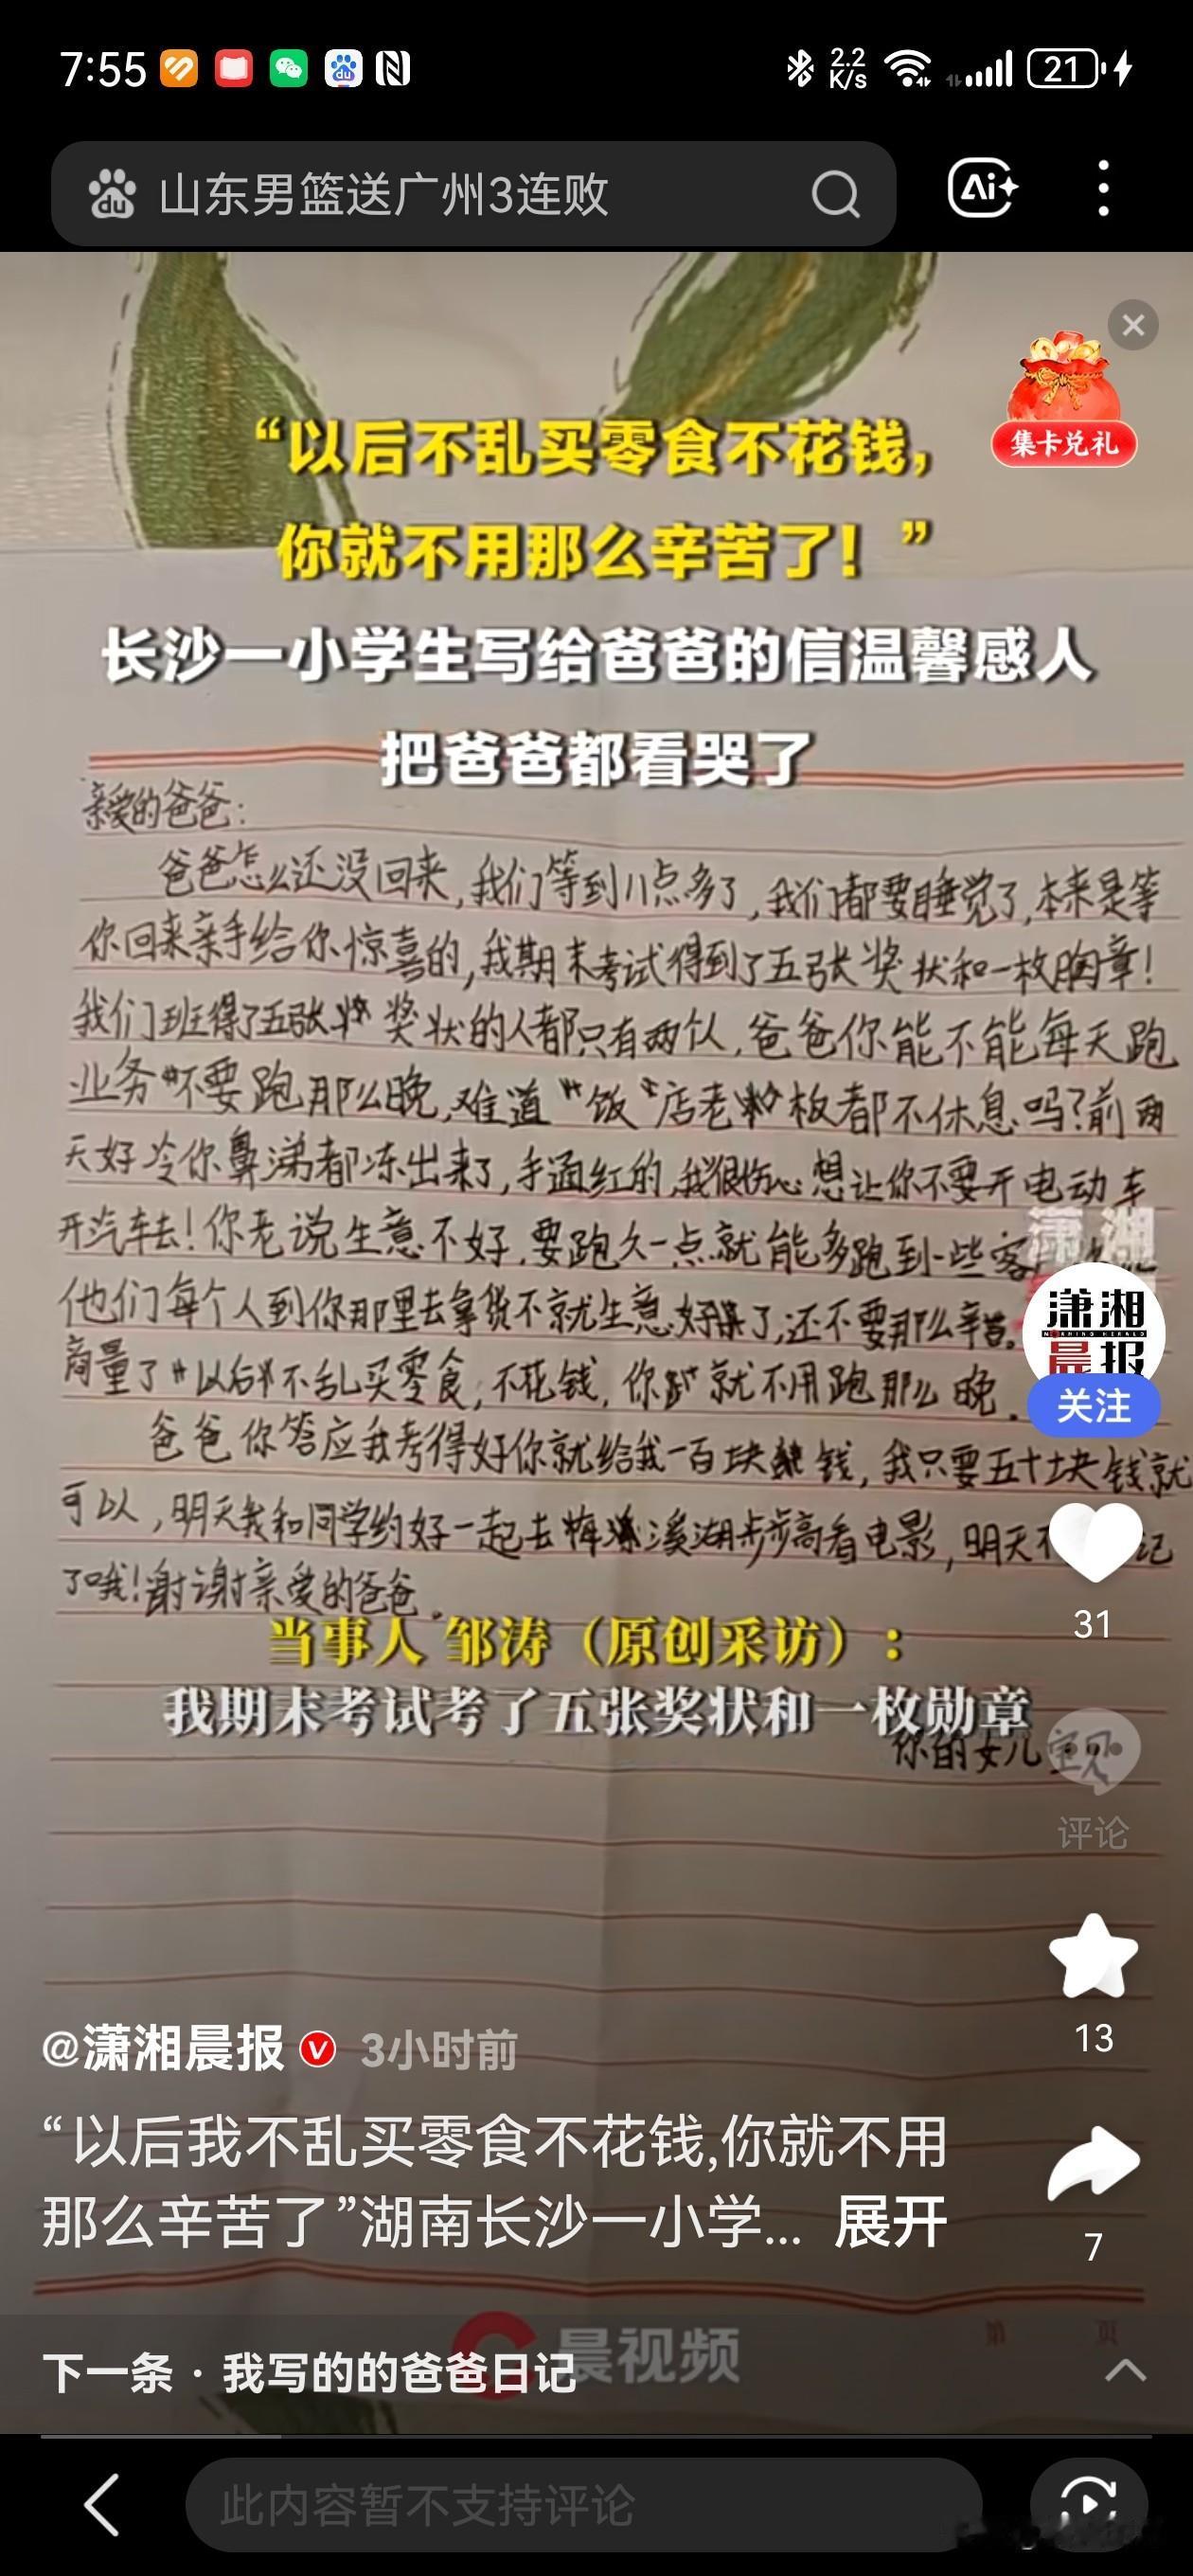 7:55
2.2
K/s
21
山东男篮送广州3连败
Ai
集卡兑礼
“以后不乱买零食不花钱，
你就不用那么辛苦了！”
长沙一小学生写给爸爸的信温馨感人
把爸爸都看哭了
亲爱的爸爸：
爸爸怎么还没回来，我们等到11点多了，我们都要睡觉了，本来是等
你回来亲手给你惊喜的，我期末考试得到了五张奖状和一枚胸章！
我们班得了五张奖状的人都只有两个，爸爸你能不能每天跑
业务不要跑那么晚，难道饭店老板都不休息吗？前两
天好冷你鼻涕都冻出来了，手通红的，我很伤心想让你不要开电动车
开汽车去！你老说生意不好，要跑久一点就能多跑到一些客
他们每个人到你那里去拿货不就生意好了，还不要那么辛苦。
商量了以后不乱买零食，不花钱，你就不用跑那么晚。
爸爸你答应我考得好你就给我一百块钱，我只要五十块钱就
可以，明天我和同学约好一起去梅溪湖步步高看电影，明天记
了哦！谢谢亲爱的爸爸。
潇湘
潇湘
MORNING HERALD
晨报
关注
31
当事人 邹涛（原创采访）：
我期末考试考了五张奖状和一枚勋章
你的女儿
评论
13
@潇湘晨报 3小时前
“以后我不乱买零食不花钱,你就不用
那么辛苦了”湖南长沙一小学... 展开
7
晨视频
下一条 · 我写的的爸爸日记
此内容暂不支持评论